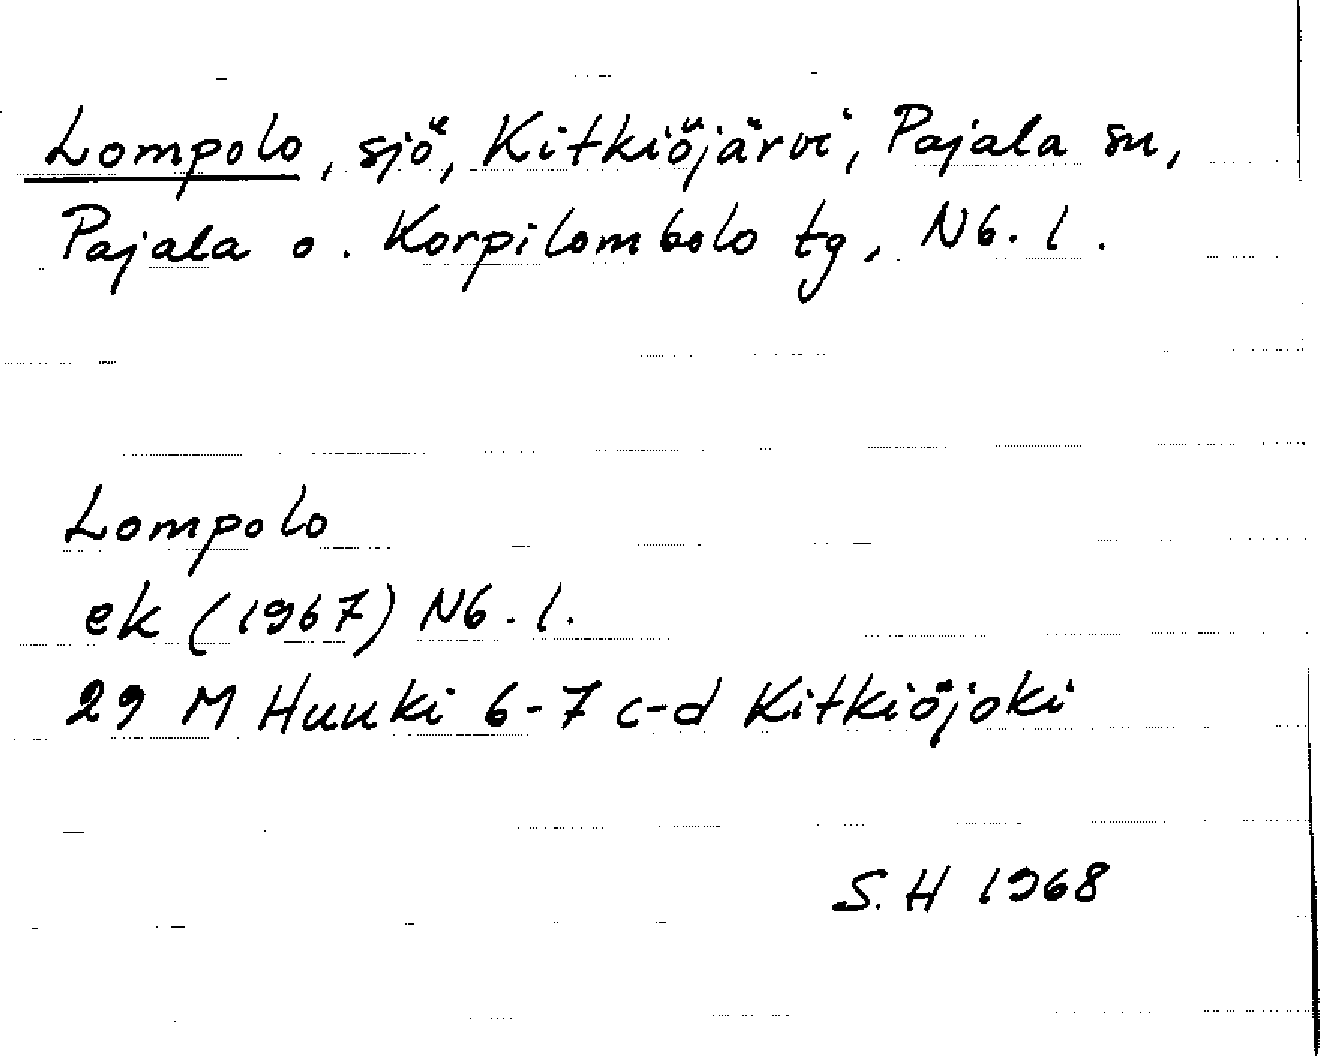 Lompolo, sjö, Kitkiöjärvi, Pajala sn,
Pajala o. Korpilombolo tg, Nb. l.
Lompolo
ek (1967) Nb. l.
29 M Huuki 6-7 c-d Kitkiöjoki
S. H 1968